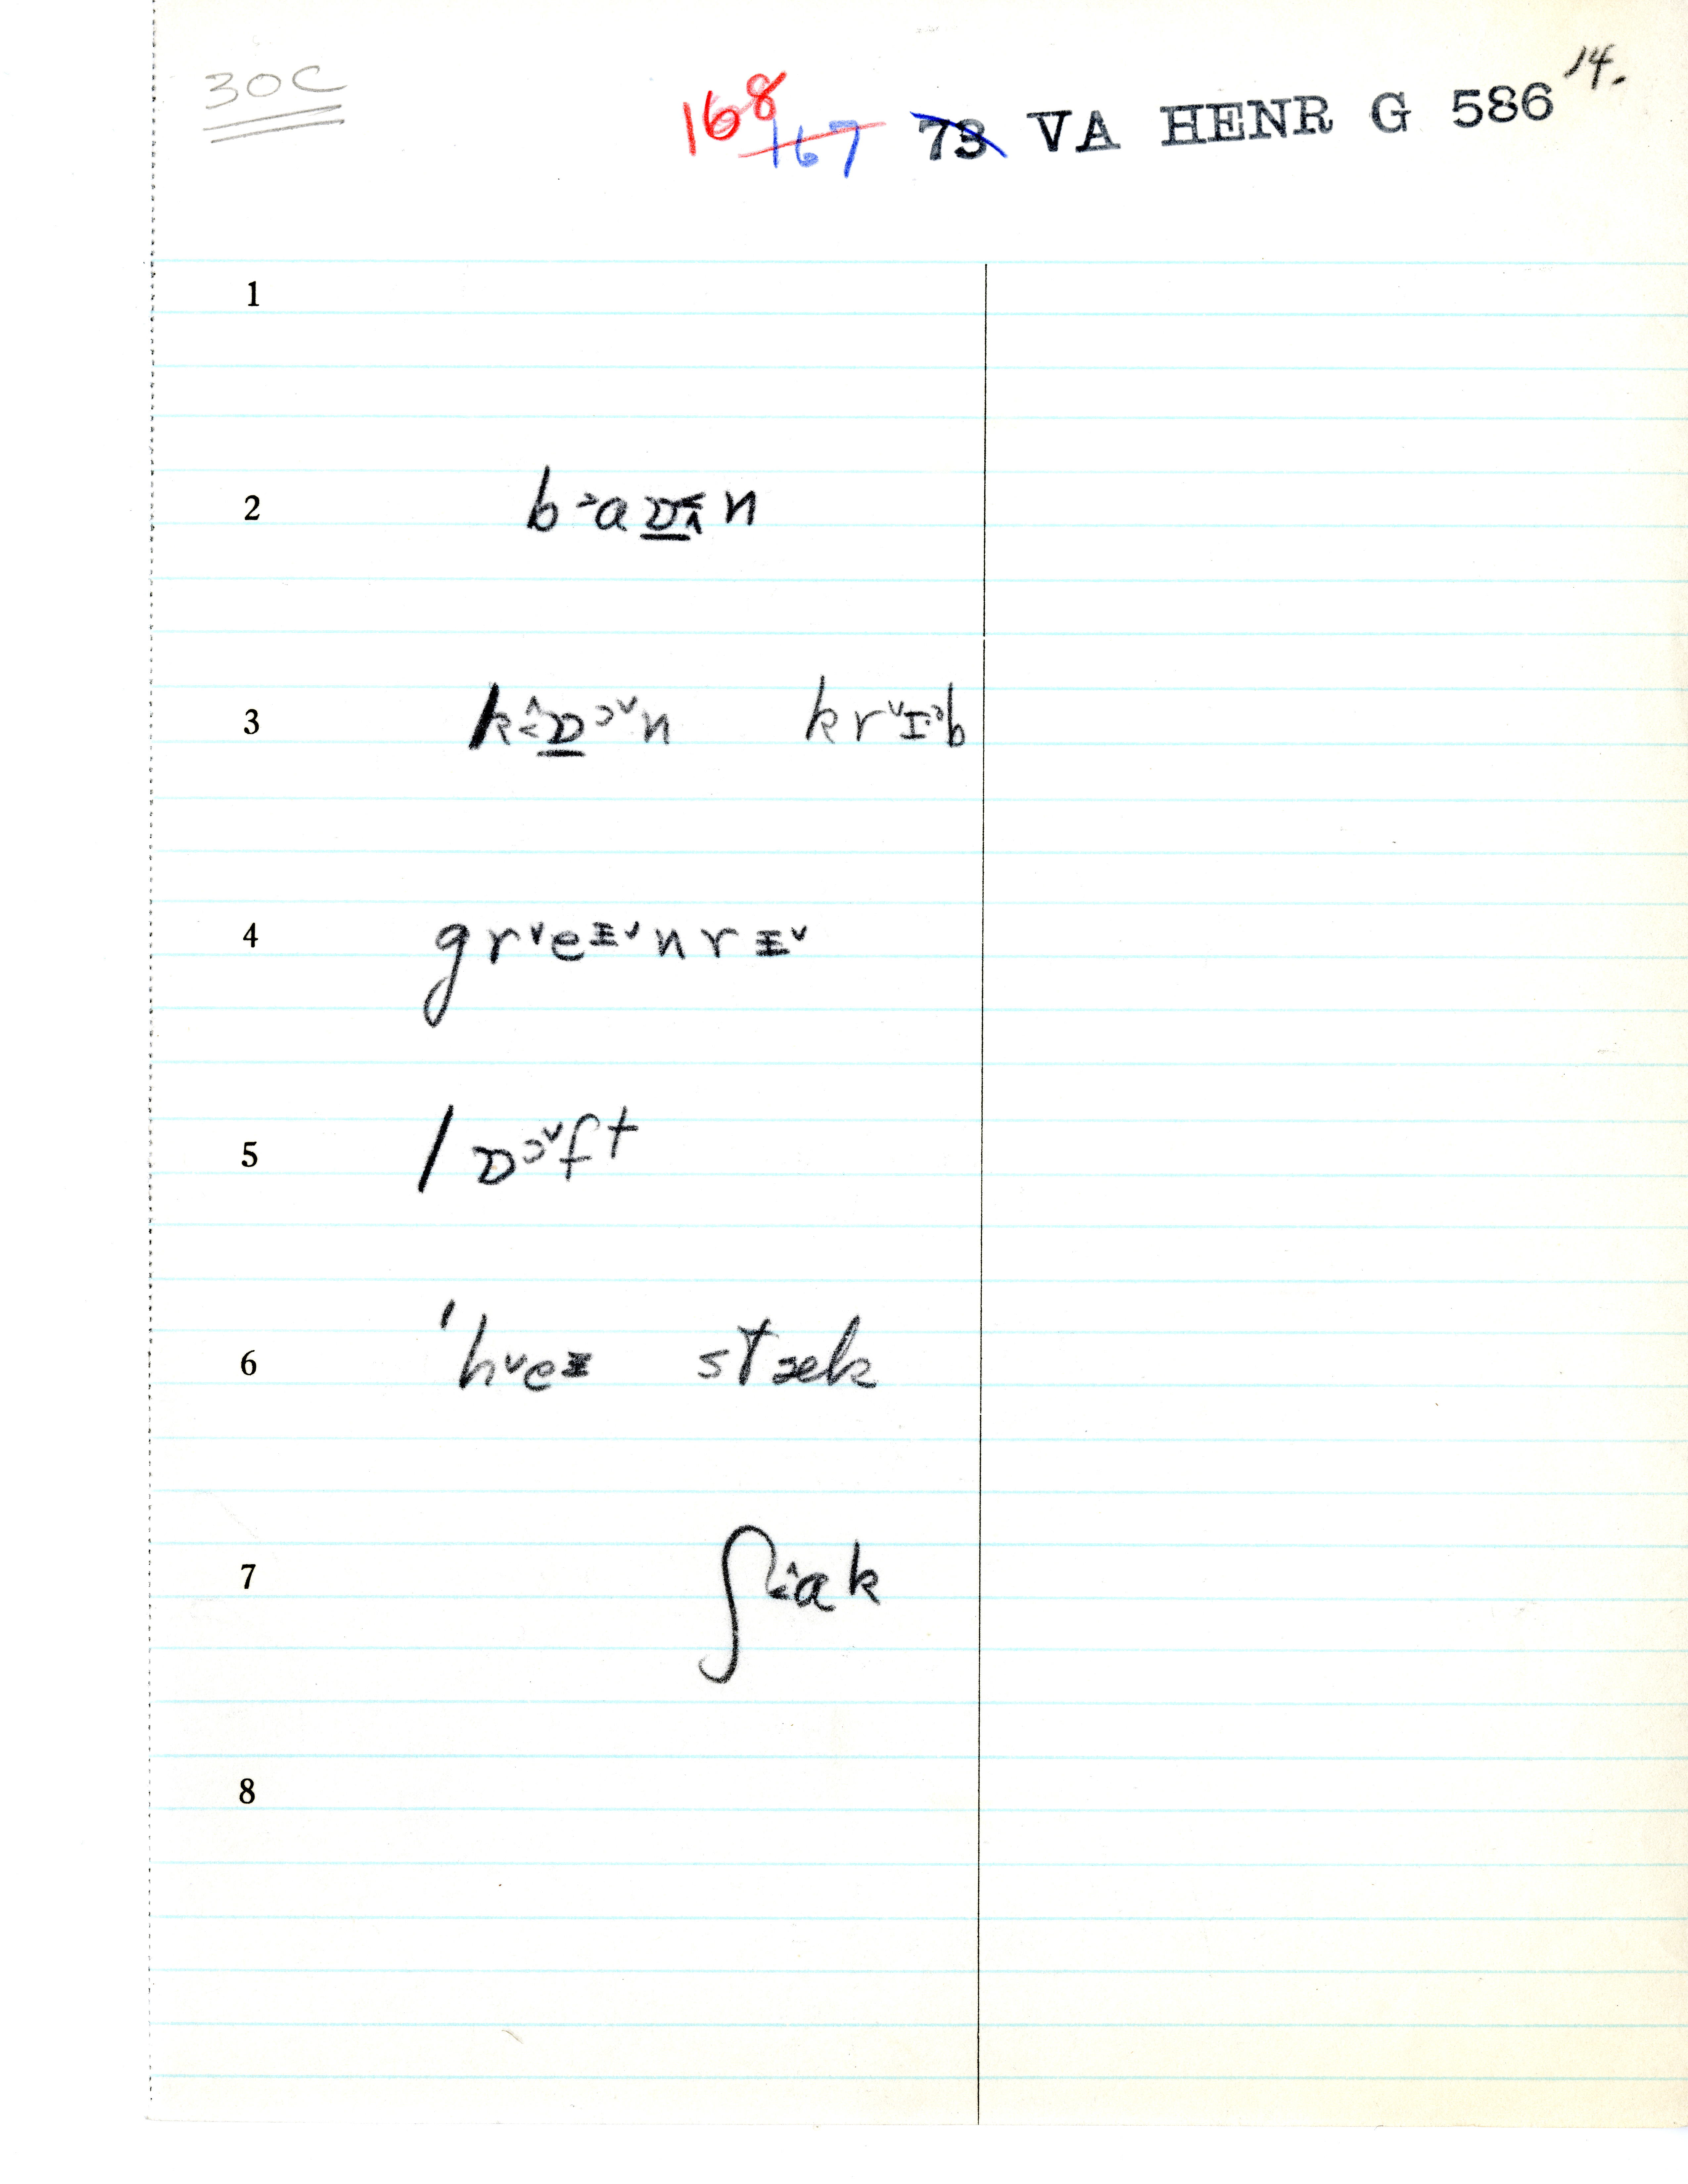 30C
168 167 73 VA HENR G 586 14.
1
2 b˃aɒ˱n
3 k˱ɒɔ˅n kr˅ɪ˃b
4 gr˅eɪ˅nrɪ˅
5 / ɒɔ˅ft
6 'h˅eɪ stæk
7 ʃ˱ak
8